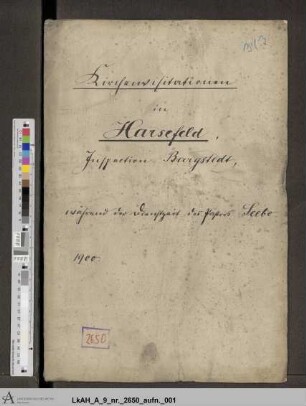 Kirchenvisitationen
in
Harsefeld,
Inspection Bargstedt,
während der Dienstzeit des Pastors
1900.
2650
LkAH_A_9_nr._2650_aufn._001